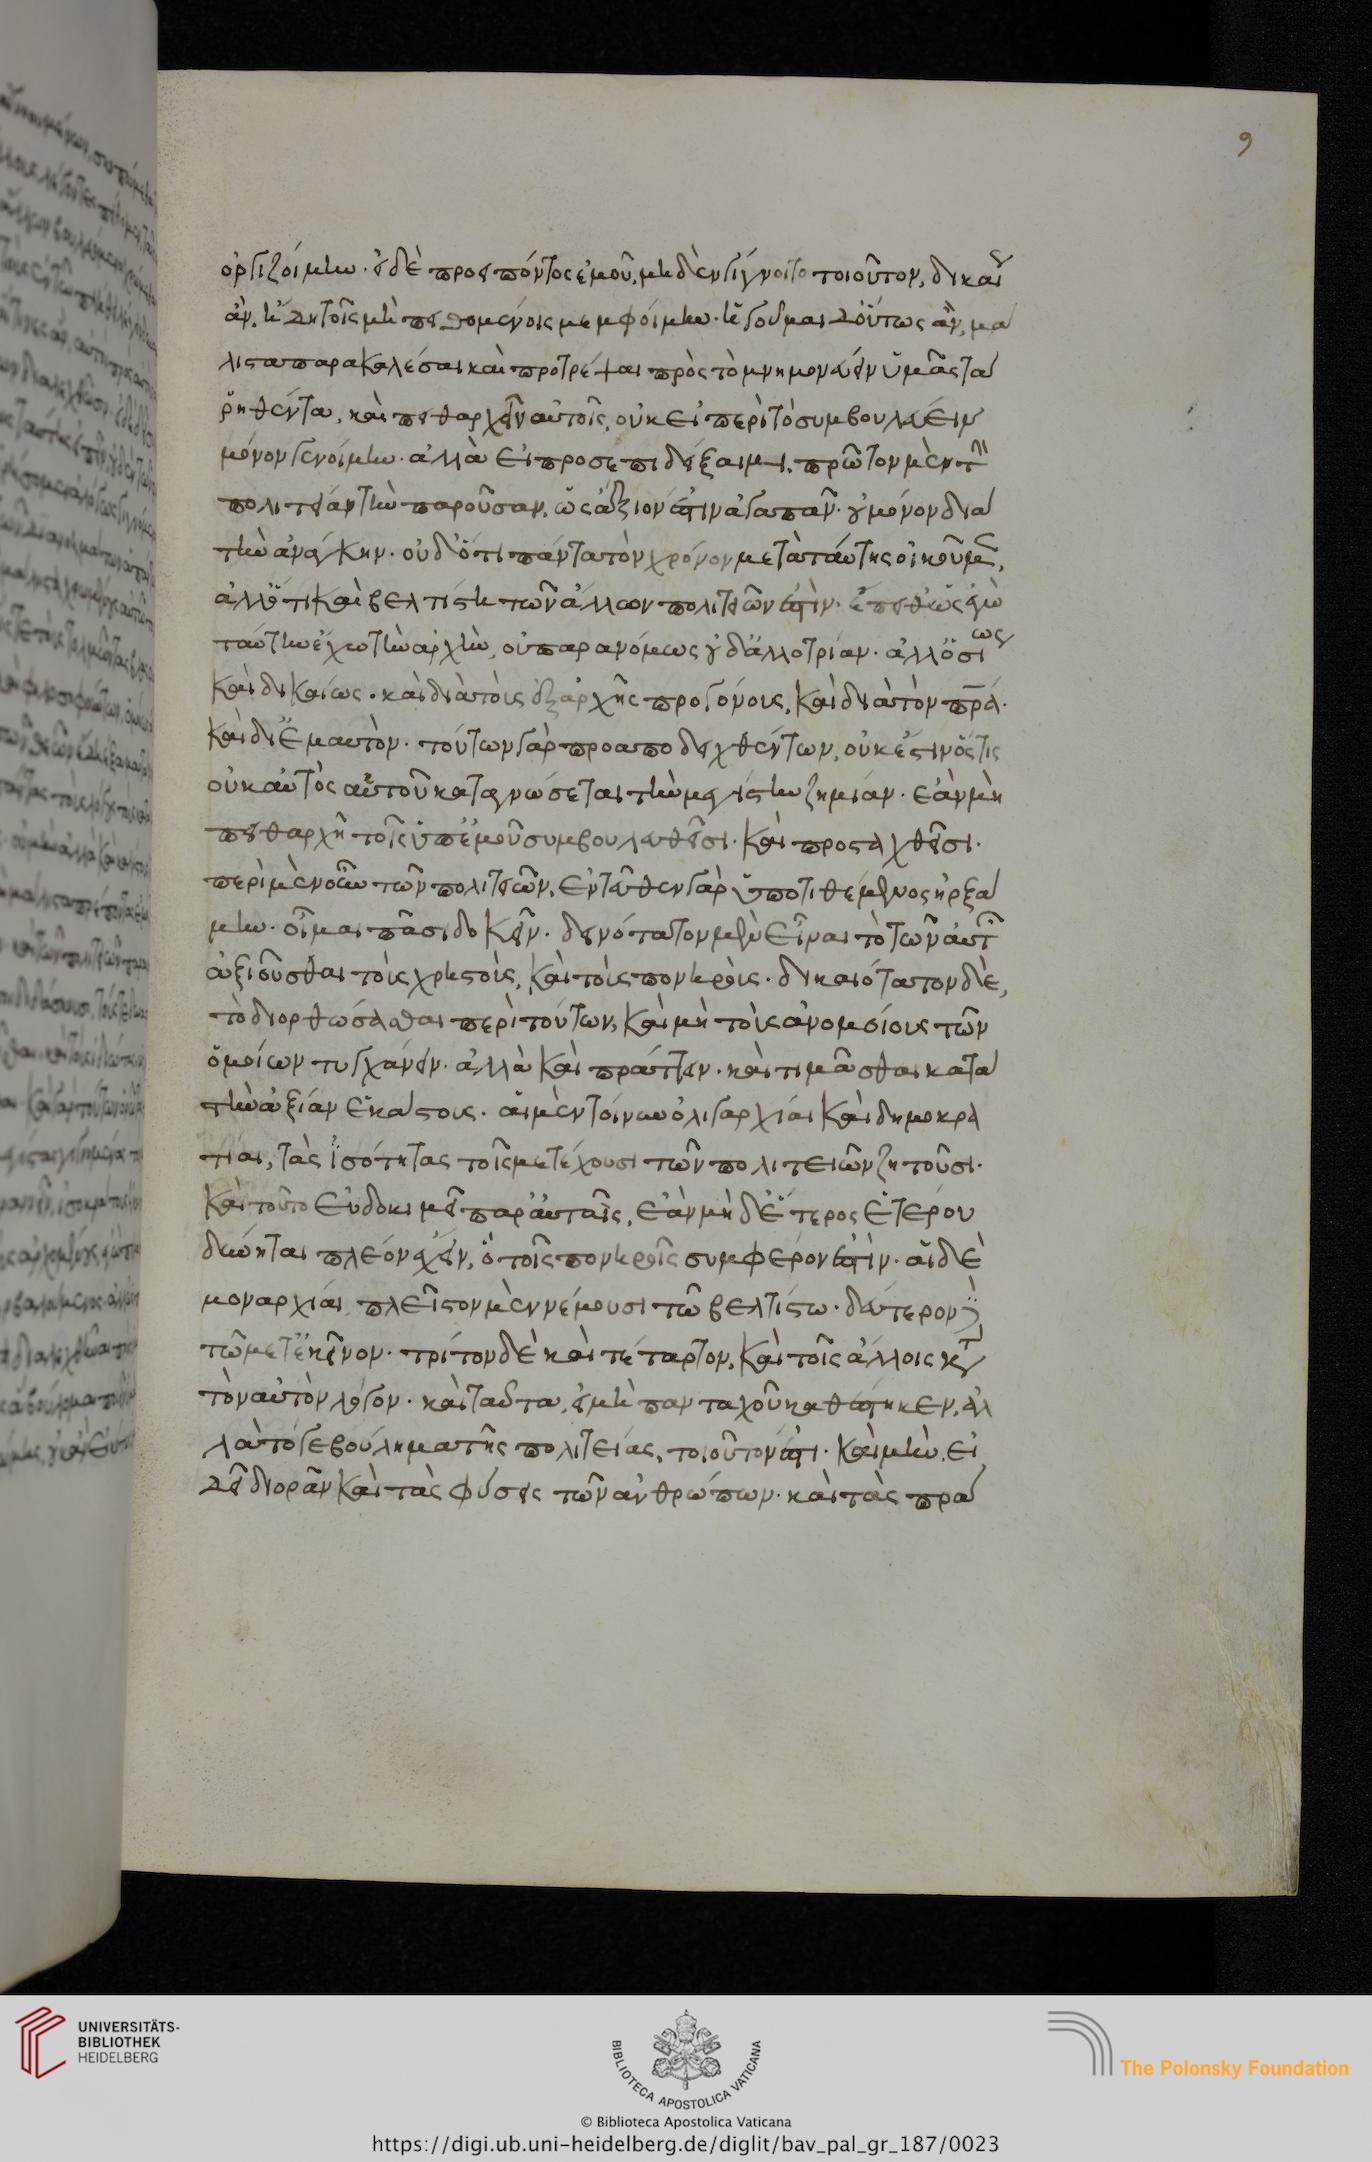 9
ὀργιζοίμην. εἰ δὲ προειπόντος ἐμοῦ, μηδὲν γίγνοιτο τοιοῦτον, δικαί
ἂν, ἤδη τοῖς μὴ πειθομένοις μεμφοίμην. ἡγοῦμαι δ' οὕτως ἂν, μά
λιστα παρακαλέσαι καὶ προτρέψαι πρὸς τὸ μνημονεύειν ὑμᾶς τὰ
ῥηθέντα, καὶ πειθαρχεῖν αὐτοῖς, οὐκ εἰ περὶ τὸ συμβουλεύειν
μόνον γενοίμην. ἀλλὰ εἰ προσεπιδείξαιμι, πρῶτον μὲν τὴν
πολιτείαν τὴν παροῦσαν, ὡς ἄξιόν ἐστιν ἀγαπᾶν. οὐ μόνον διὰ
τὴν ἀνάγκην. οὐδ' ὅτι πάντα τὸν χρόνον μετὰ ταύτης οἰκοῦμεν,
ἀλλ' ὅτι καὶ βελτίστη τῶν ἄλλων πολιτειῶν ἐστίν. ἔπειθ' ὡς ἐγὼ
ταύτην ἔχω τὴν ἀρχὴν, οὐ παρανόμως οὐδ' ἀλλοτρίαν. ἀλλ' ὁσίως
καὶ δικαίως. καὶ διὰ τοὺς ἐξ ἀρχῆς προγόνους, καὶ διὰ τὸν πρα.
καὶ δι' ἐμαυτόν. τούτων γὰρ προαποδειχθέντων, οὐκ ἔστιν ὅστις
οὐκ αὐτὸς αὑτοῦ καταγνώσεται τὴν μεγίστην ζημίαν. ἐὰν μὴ
πειθαρχῇ τοῖς ὑπ' ἐμοῦ συμβουλευθεῖσι. καὶ προσταχθεῖσι.
περὶ μὲν οὖν τῶν πολιτειῶν, ἐντεῦθεν γὰρ ὑποτιθέμενος ἠρξά
μην. οἶμαι πᾶσι δοκεῖν. δεινότατον μὲν εἶναι τὸ τῶν αὐτῶν
ἀξιοῦσθαι τοὺς χρηστοὺς, καὶ τοὺς πονηρούς. δικαιότατον δὲ,
τὸ διορθώσασθαι περὶ τούτων, καὶ μὴ τοὺς ἀνομοίους τῶν
ὁμοίων τυγχάνειν. ἀλλὰ καὶ πράττειν. καὶ τιμᾶσθαι κατὰ
τὴν ἀξίαν ἑκάστους. αἱ μὲν τοίνυν ὀλιγαρχίαι καὶ δημοκρα
τίαι, τὰς ἰσότητας τοῖς μετέχουσι τῶν πολιτειῶν ζητοῦσι.
καὶ τοῦτο εὐδοκιμεῖ παρ' αὐταῖς, ἐὰν μηδὲ ἕτερος ἑτέρου
δύνηται πλέον ἔχειν, ὃ τοῖς πονηροῖς συμφέρον ἐστίν. αἱ δὲ
μοναρχίαι, πλεῖστον μὲν νέμουσι τῷ βελτίστῳ. δεύτερον δὲ
τῷ μετ' ἐκεῖνον. τρίτον δὲ καὶ τέταρτον, καὶ τοῖς ἄλλοις κατὰ
τὸν αὐτὸν λόγον. καὶ ταῦτα, εἰ μὴ πανταχοῦ καθέστηκεν, ἀλ
λὰ τό γε βούλημα τῆς πολιτείας, τοιοῦτόν ἐστι. καὶ μὴν, εἰ
δεῖ διορᾶν καὶ τὰς φύσεις τῶν ἀνθρώπων. καὶ τὰς πρά
UNIVERSITÄTS-
BIBLIOTHEK
HEIDELBERG
BIBLIOTECA APOSTOLICA VATICANA
The Polonsky Foundation
© Biblioteca Apostolica Vaticana
https://digi.ub.uni-heidelberg.de/diglit/bav_pal_gr_187/0023